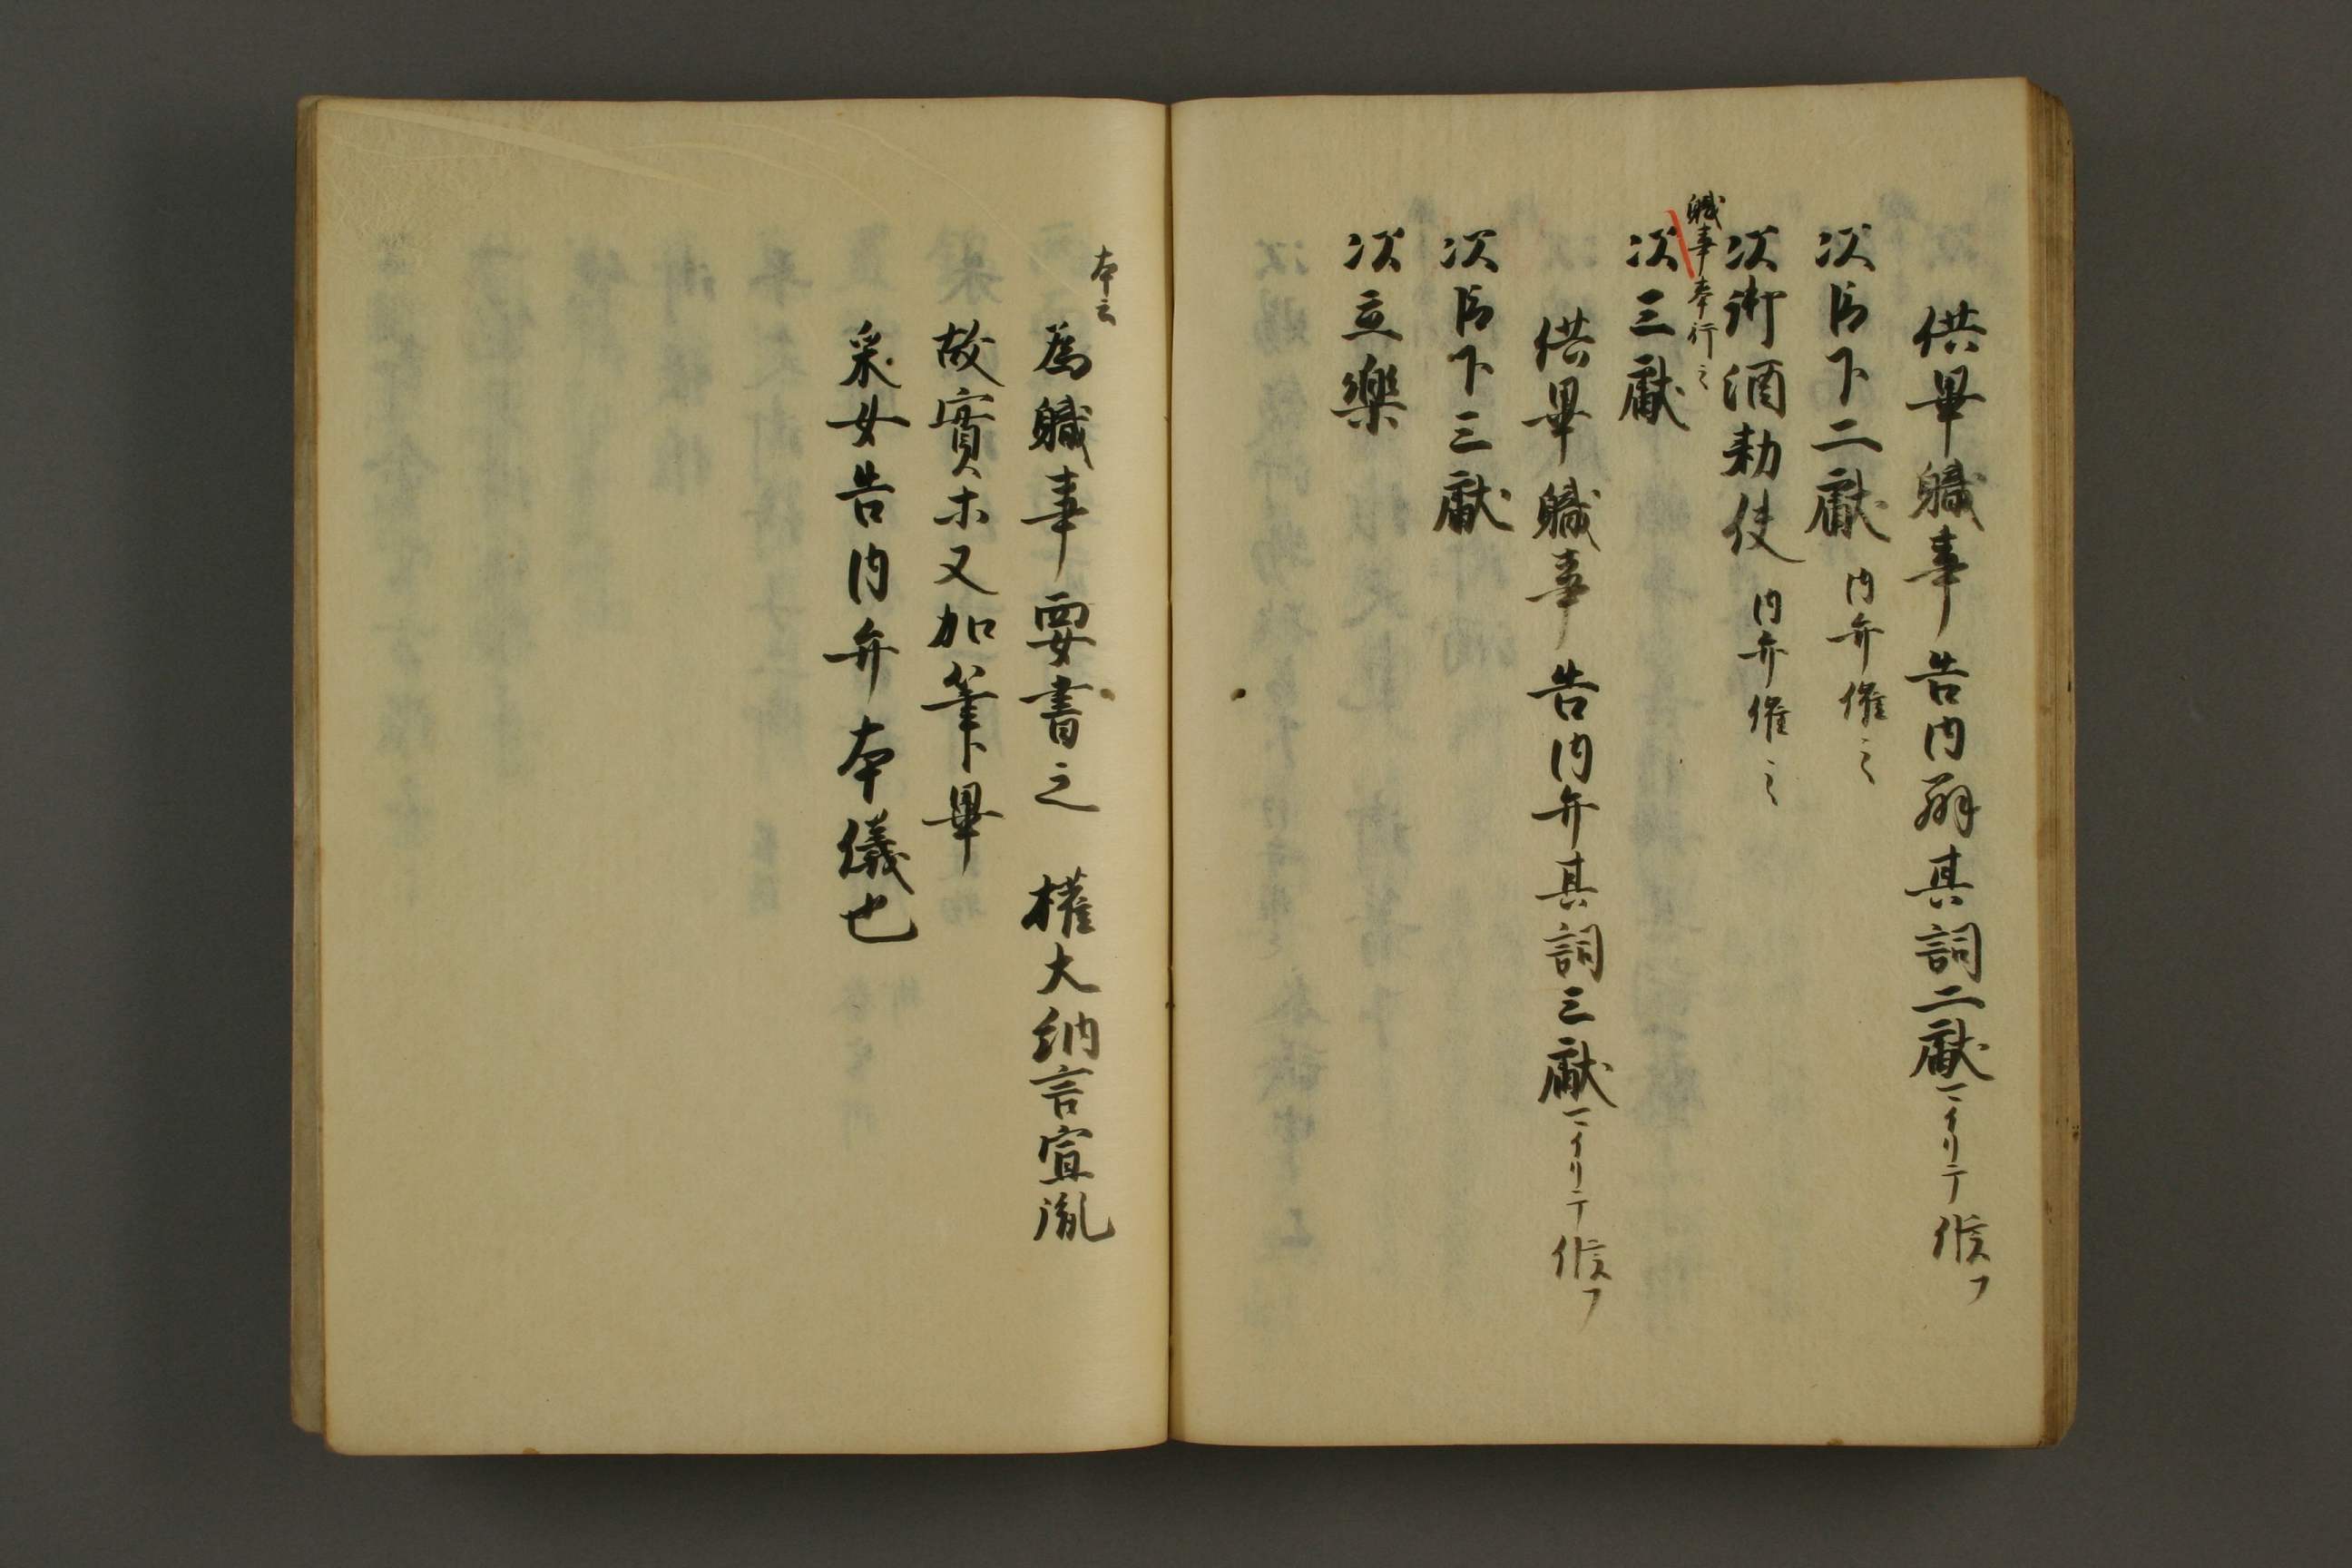 供畢職事告内辨其詞二献マイリテ候フ
次臣下二献 内弁催之
次御酒勅使 内弁催之
職事奉行之
次三献
供畢職事告内弁其詞三献マイリテ候フ
次臣下三献
次立樂
本云
為職事要書之 權大納言宣胤
故實ホ又加筆畢
采女告内弁本儀也